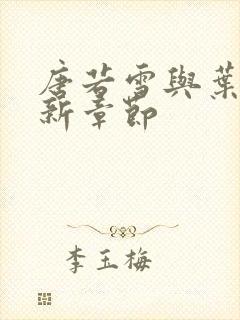 唐若雪與葉
新章節
李玉梅